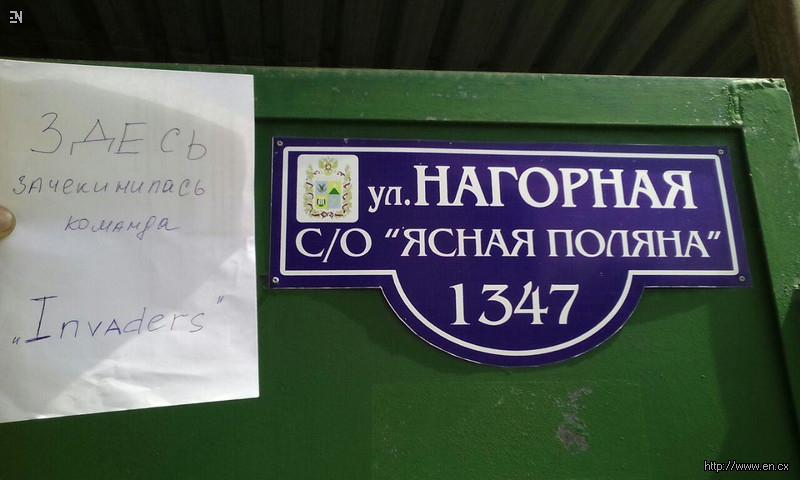 EN
ЗДЕСЬ
ЗАЧЕКИНИЛАСЬ
КОМАНДА
„Invaders"
ул. НАГОРНАЯ
С/О "ЯСНАЯ ПОЛЯНА"
1347
http://www.en.cx